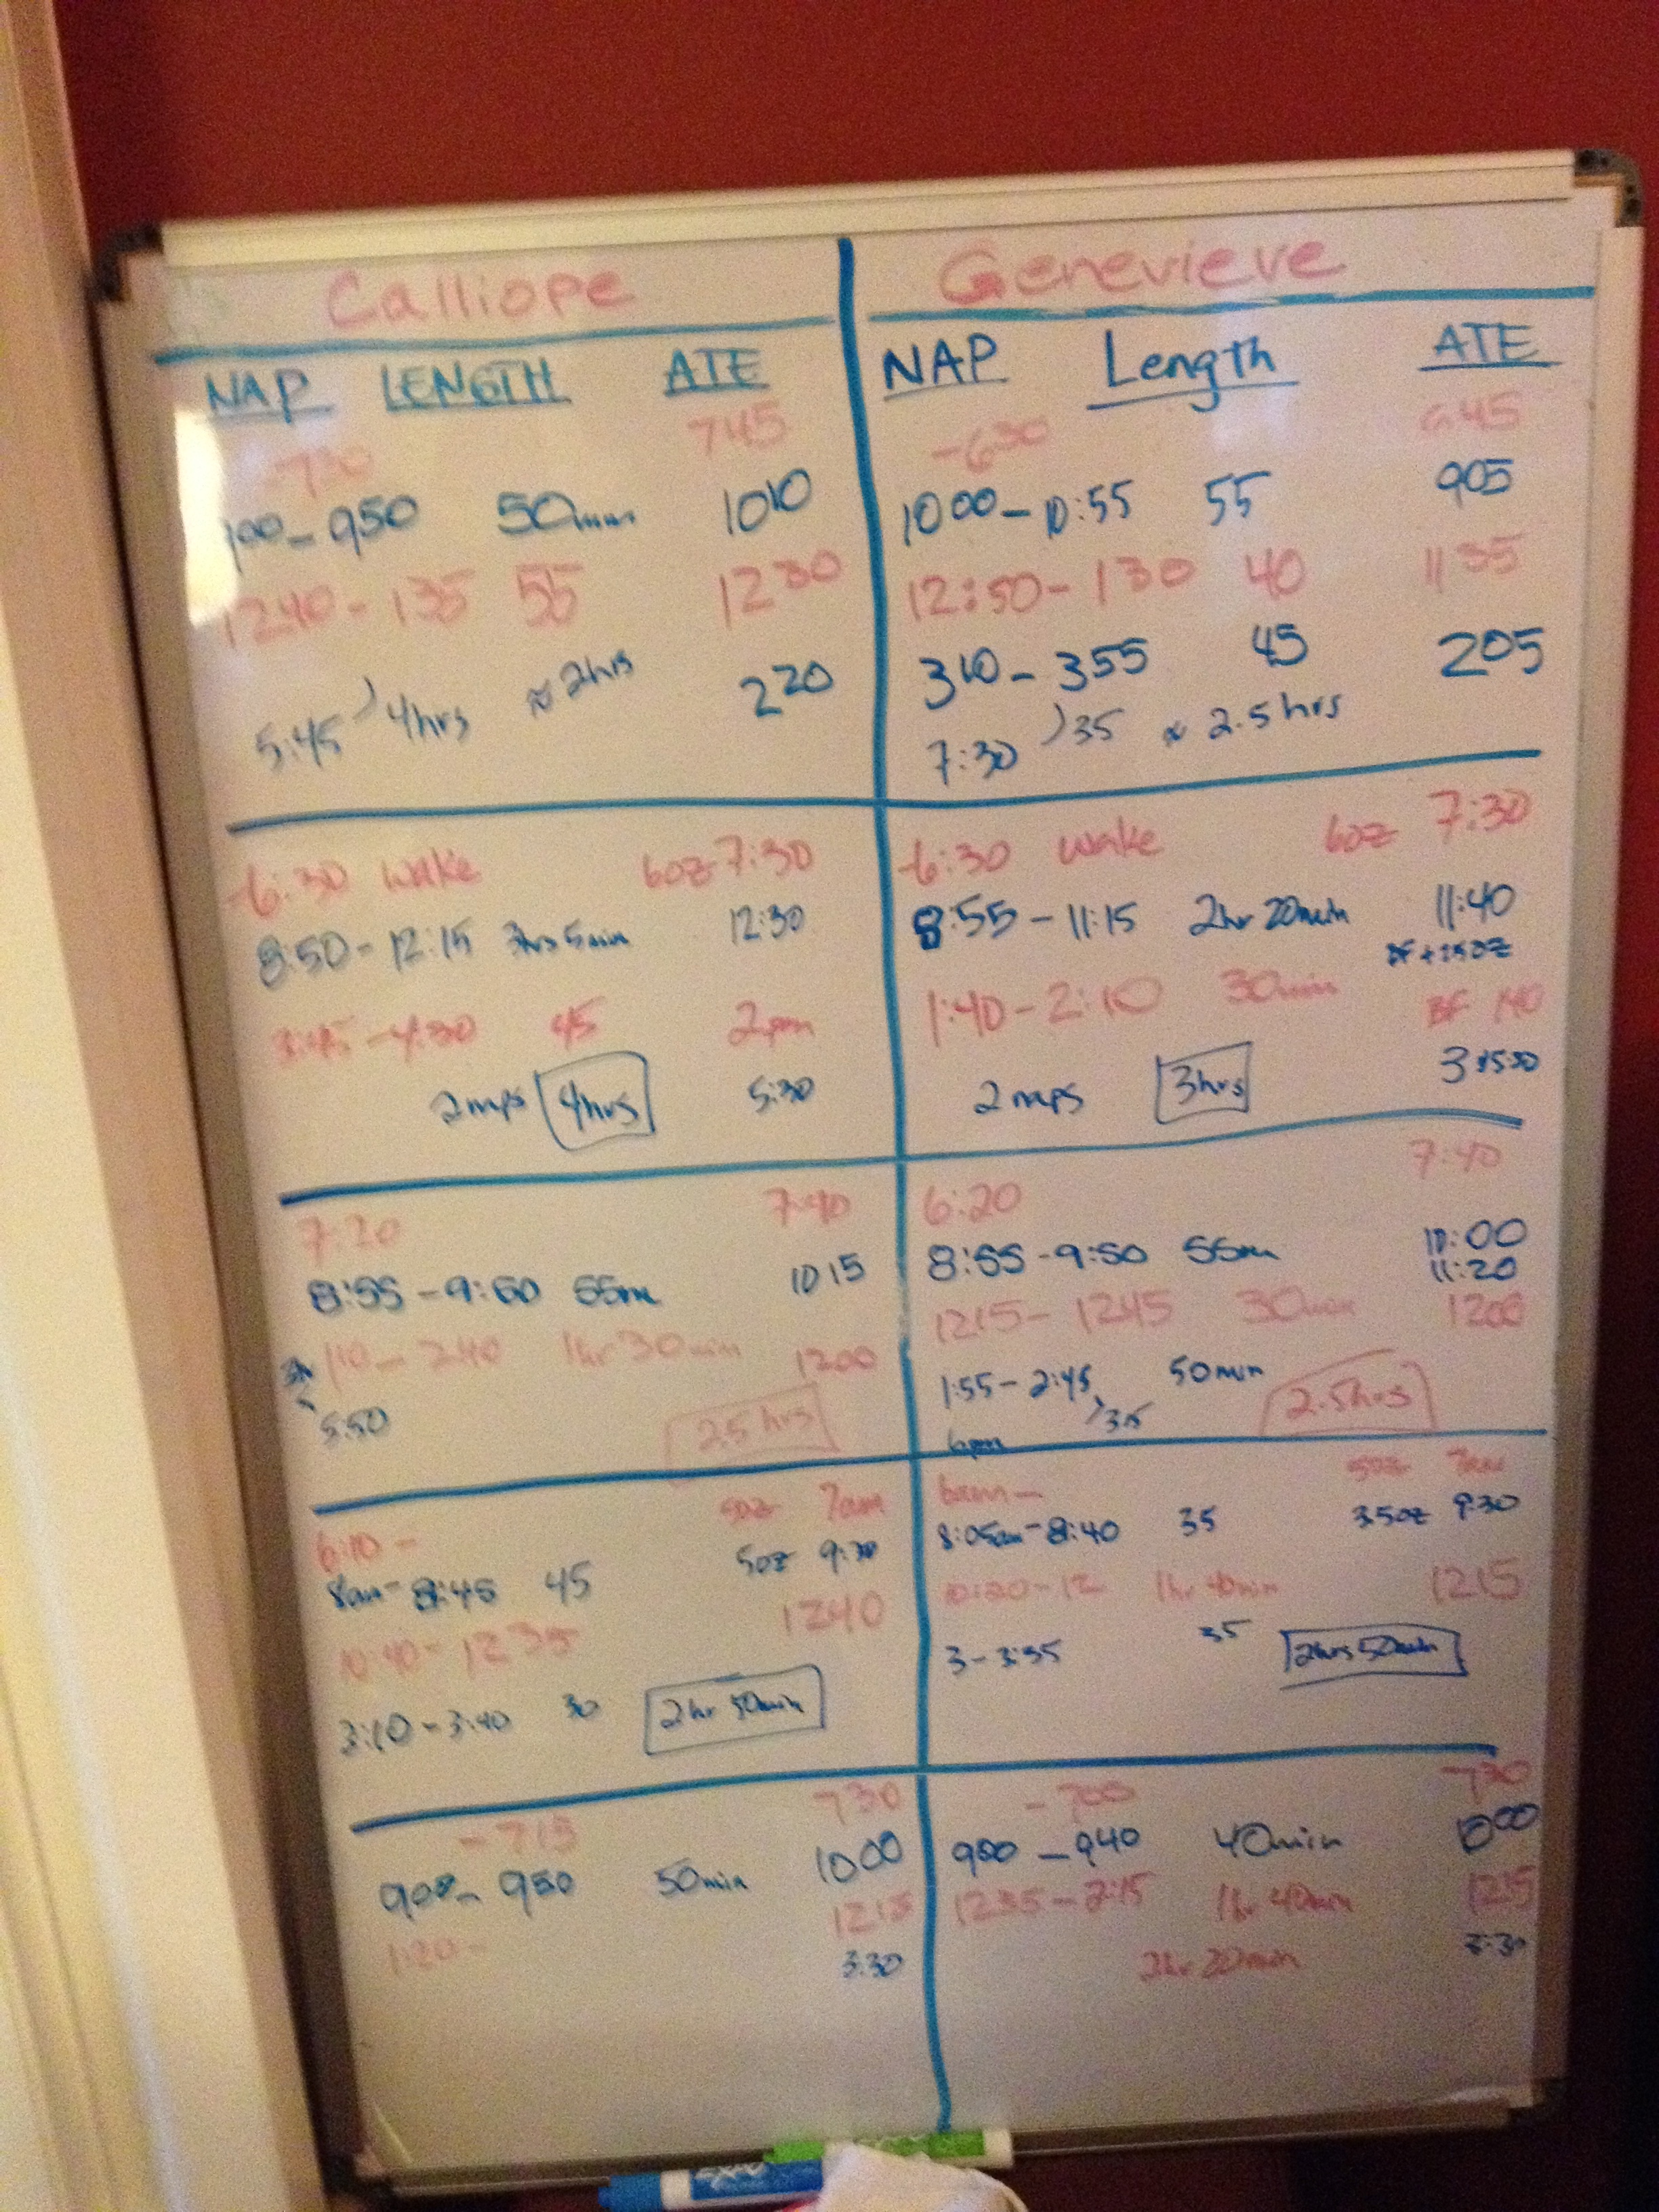 Calliope
NAP LENGTH ATE
-730 745
900-950 50min 1010
1240-135 55 1230
≈2hrs 220
5:45 )4hrs
-6:30 wake 6oz 7:30
8:50-12:15 3hrs 5min 12:30
3:45-4:30 45 2pm
2 naps 4hrs 5:30
7:20 7:40
8:55-9:50 55m 1015
110-240 1hr 30min 1200
5:50 2.5hrs
6:10- 5oz 7am
8am-8:45 45 5oz 9:30
10:40-1235 1240
3:10-3:40 30 2hr 50min
-715 730
900-950 50min 1000
1215
1:20-
3:30
Genevieve
NAP Length ATE
-630 645
1000-10:55 55 905
12:50-130 40 1135
310-355 45 205
7:30 )35 ≈2.5hrs
-6:30 wake 6oz 7:30
8:55-11:15 2hr 20min 11:40
1:40-2:10 30min BF 140
2 naps 3hrs
6:20 7:40
8:55-9:50 55m 10:00
11:20
1215-1245 30min 1200
1:55-2:45 50min
)35 2.5hrs
6pm
6am- 5oz 7am
8:05am-8:40 35 3.5oz 9:30
10:20-12 1hr 40min 1215
3-3:35 35 2hrs 50min
-700 730
900-940 40min 1000
1235-2:15 1hr 40min 1215
2hr 20min 3:30
EXPO